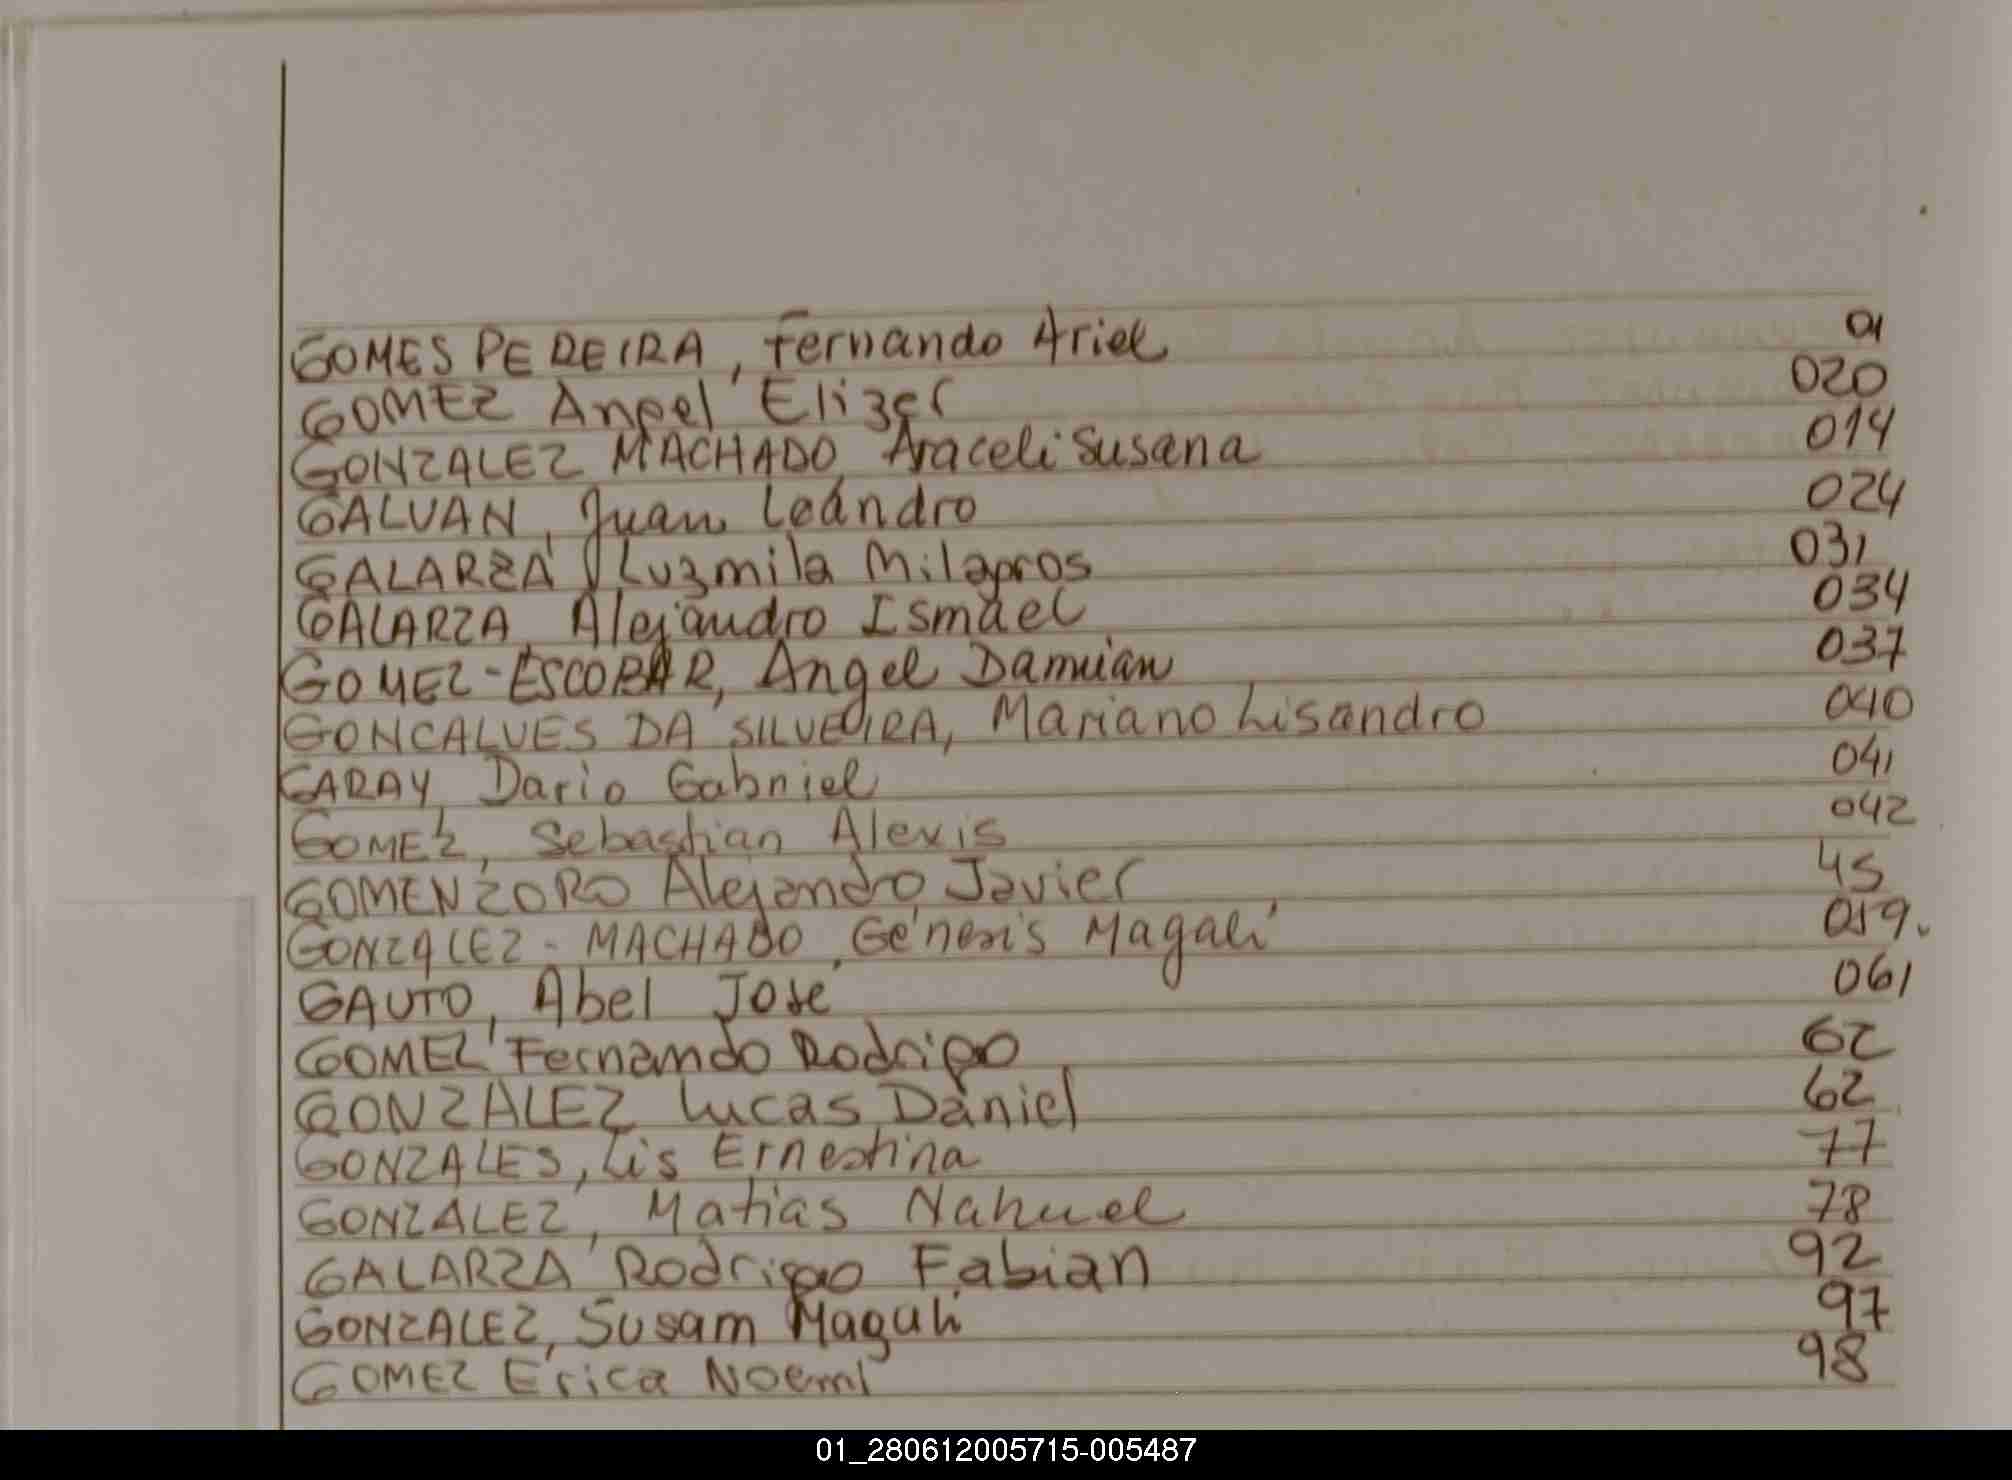 GOMES PEREIRA, Fernando Ariel 01
GOMEZ Angel Elizer 020
GONZALEZ MACHADO, Araceli Susana 014
GALVAN, Juan Leandro 024
GALARZA Luzmila Milagros 031
GALARZA, Alejandro Ismael 034
GOMEZ-ESCOBAR, Angel Damian 037
GONCALVES DA SILVEIRA, Mariano Lisandro 040
GARAY, Dario Gabriel 041
GOMEZ, Sebastian Alexis 042
GOMENZORO Alejandro Javier 45
GONZALEZ-MACHADO, Génesis Magalí 059.
GAUTO, Abel José 061
GOMEZ Fernando Rodrigo 62
GONZALEZ Lucas Daniel 62
GONZALES, Lis Ernestina 77
GONZALEZ, Matias Nahuel 78
GALARZA Rodrigo Fabian 92
GONZALEZ, Susam Magali 97
GOMEZ Erica Noemí 98
01_280612005715-005487